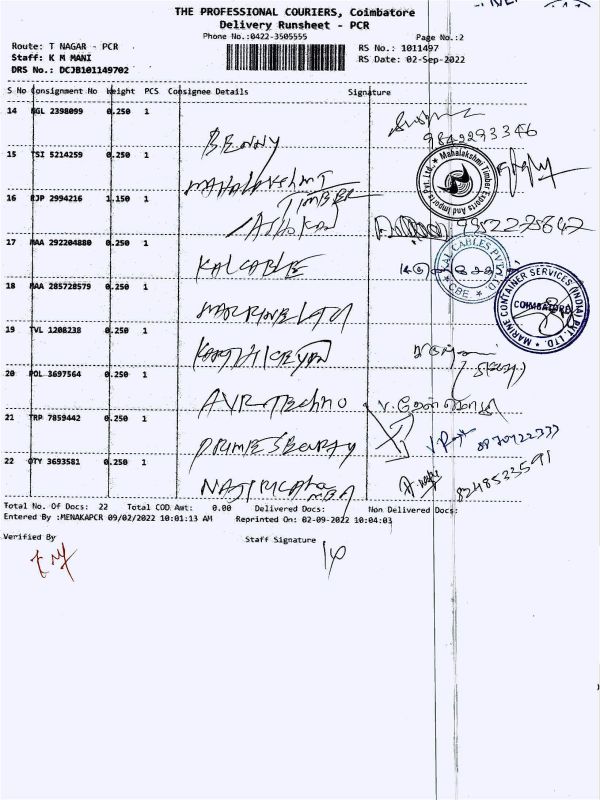 THE PROFESSIONAL COURIERS, Coimbatore
Delivery Runsheet - PCR
Phone No.:0422-3505555 Page No.:2
Route: T NAGAR - PCR RS No.: 1011497
Staff: K M MANI RS Date: 02-Sep-2022
DRS No.: DCJB101149702
S No Consignment No Weight PCS Consignee Details Signature
14 2398099 0.250 1
BENNY
9842293346
15 TSI 5214259 0.250 1
MAHALAKSHMI
TIMBER
Mahalakshmi Timber Exports And Imports Pvt. Ltd.
16 RJP 2994216 1.150 1
ASHOKAN
17 MAA 292204880 0.250 1
KALCABLE
CABLES PVT
CBE
18 MAA 285728579 0.250 1
MARINE CONTAINER SERVICES (INDIA) PVT. LTD.
COIMBATORE
19 TVL 1208238 0.250 1
20 POL 3697564 0.250 1
AVR TECHNO
21 TRP 7859442 0.250 1
22 OTY 3693581 0.250 1
8248523591
Total No. Of Docs: 22 Total COD Amt: 0.00 Delivered Docs: Non Delivered Docs:
Entered By :MENAKAPCR 09/02/2022 10:01:13 AM Reprinted On: 02-09-2022 10:04:03
Verified By Staff Signature